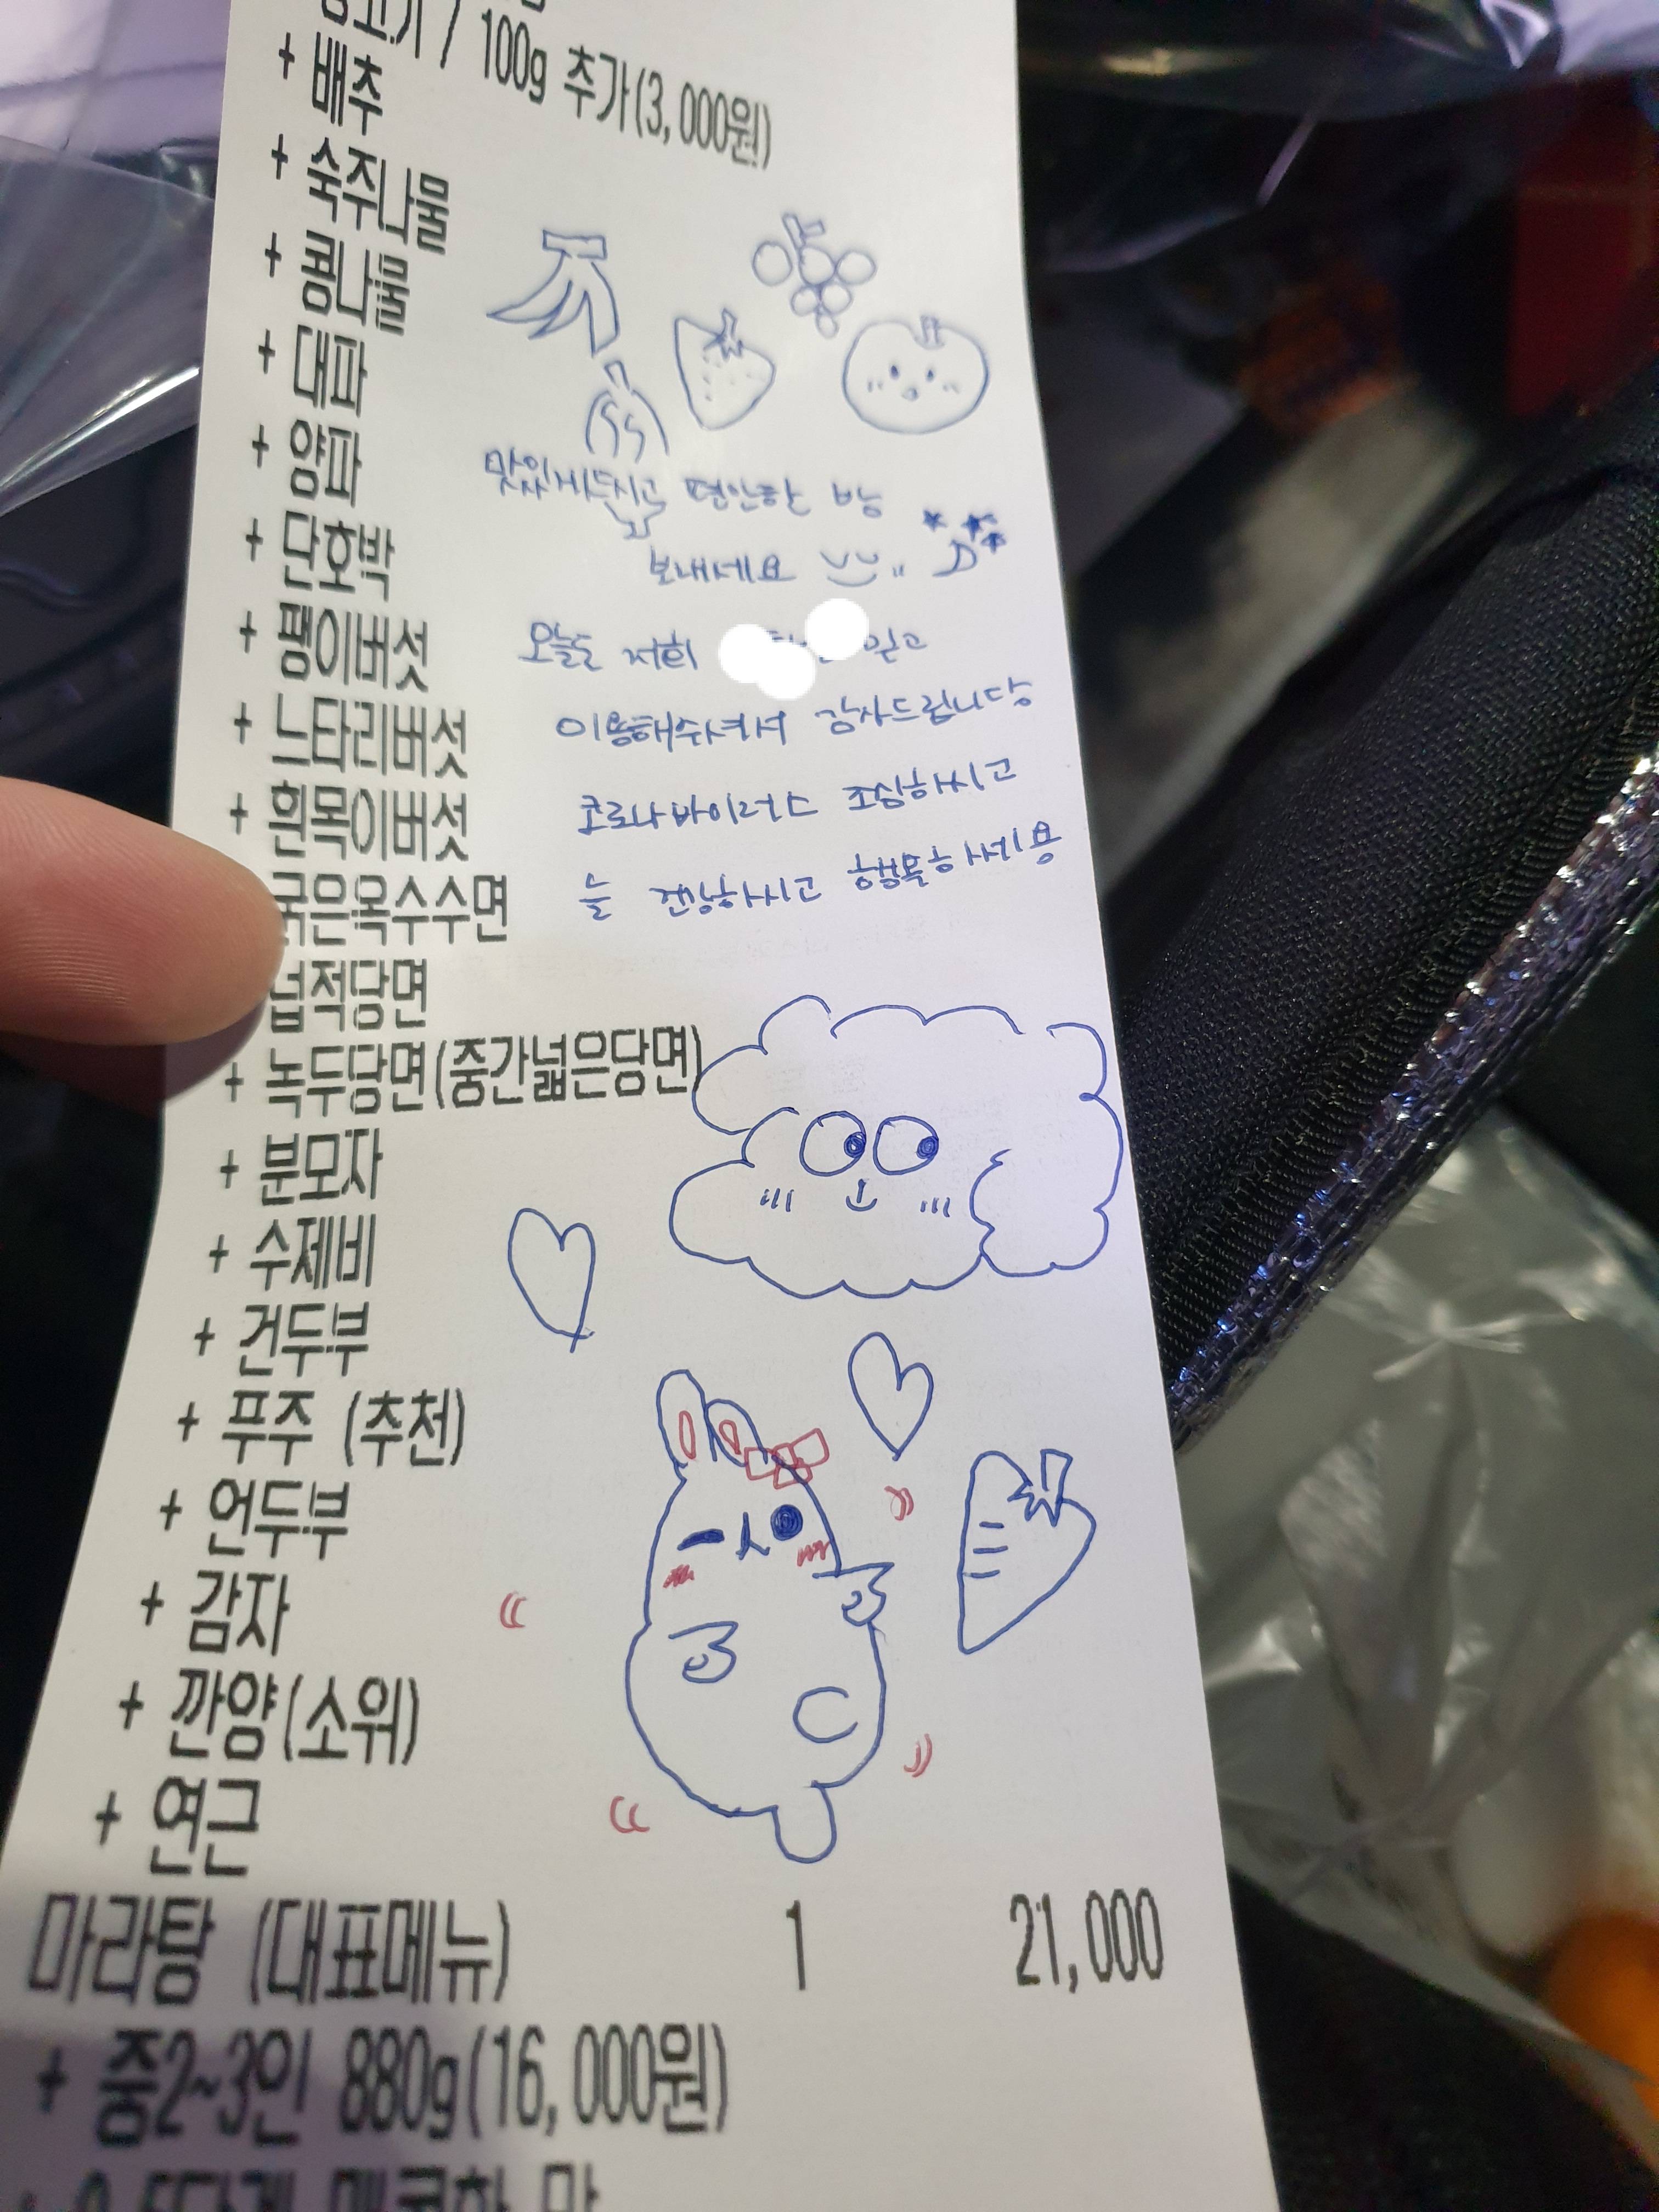 고기 / 100g 추가(3,000원)
+ 배추
+ 숙주나물
+ 콩나물
+ 대파
+ 양파
맛있게드시고 편안한 밤
+ 단호박
보내세요
+ 팽이버섯
오늘도 저희 믿고
+ 느타리버섯
이용해주셔서 감사드립니당
+ 흰목이버섯
코로나바이러스 조심하시고
굵은옥수수면
늘 건강하시고 행복하세용
넙적당면
+ 녹두당면(중간넓은당면)
+ 분모자
+ 수제비
+ 건두부
+ 푸주 (추천)
+ 언두부
+ 감자
+ 깐양(소위)
+ 연근
마라탕 (대표메뉴) 1 21,000
+ 중2~3인 880g(16,000원)